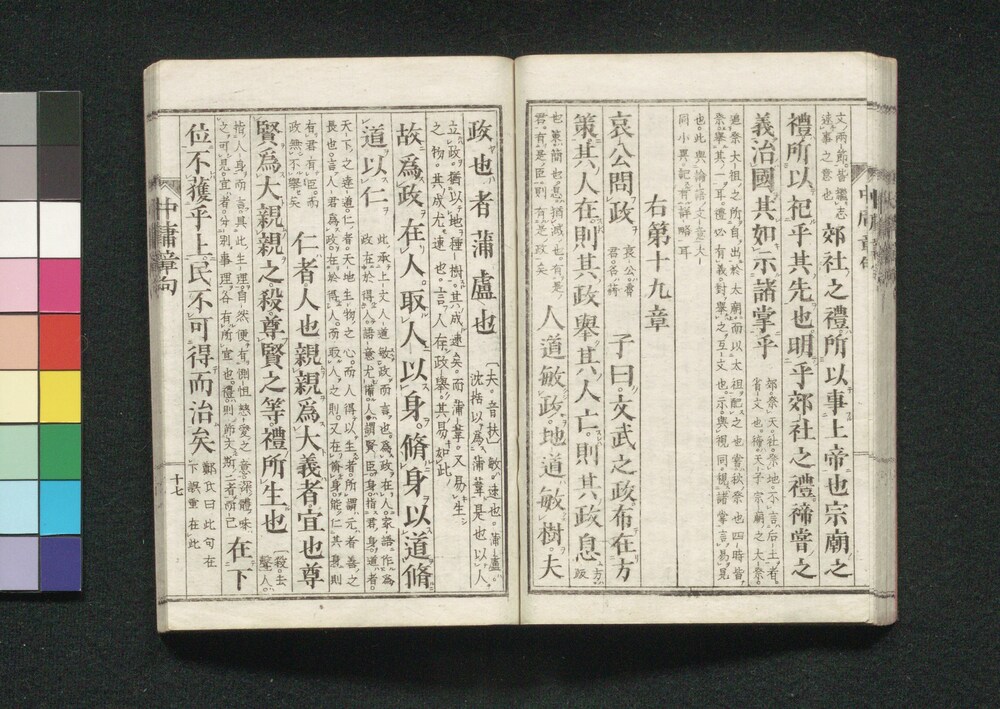 文兩節皆繼志
述事之意也
郊社之禮所以事上帝也宗廟之
禮所以祀乎其先也明乎郊社之禮禘嘗之
義治國其如示諸掌乎
郊祭天社祭地不言后土者
省文也禘天子宗廟之大祭
追祭太祖之所自出於太廟而以太祖配之也嘗秋祭也四時皆
祭舉其一耳禮必有義對舉之互文也示與視同視諸掌言易見
也此與論語文意大
同小異記有詳略耳
右第十九章
哀公問政
哀公魯
君名蔣
子曰文武之政布在方
策其人存則其政舉其人亡則其政息
方
版
也策簡也息猶滅也有是
君有是臣則有是政矣
人道敏政地道敏樹夫
政也者蒲盧也
夫音扶 敏速也蒲盧
沈括以爲蒲葦是也以人
立政猶以地種樹其成速矣而蒲葦又易生
之物其成尤速也言人存政舉其易如此
故爲政在人取人以身脩身以道脩
道以仁
此承上文人道敏政而言也爲政在人家語作爲
政在於得人語意尤備人謂賢臣身指君身道者
天下之達道仁者天地生物之心而人得以生者所謂元者善之
長也言人君爲政在於得人而取人之則又在脩身能仁其身則
有君有臣而
政無不舉矣
仁者人也親親爲大義者宜也尊
賢爲大親親之殺尊賢之等禮所生也
殺去
聲人
指人身而言具此生理自然便有惻怛慈愛之意深體味
之可見宜者分別事理各有所宜也禮則節文斯二者而已
在下
位不獲乎上民不可得而治矣
鄭氏曰此句在
下誤重在此
中庸章句
十七